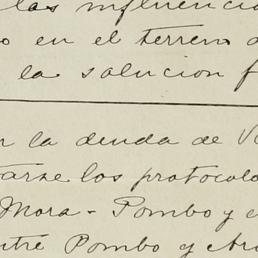 las influencia
o en el terreno d
la solucion f
n la deuda de V
tarse los protocolo
Mora - Pombo y e
ntre Pombo y Ar